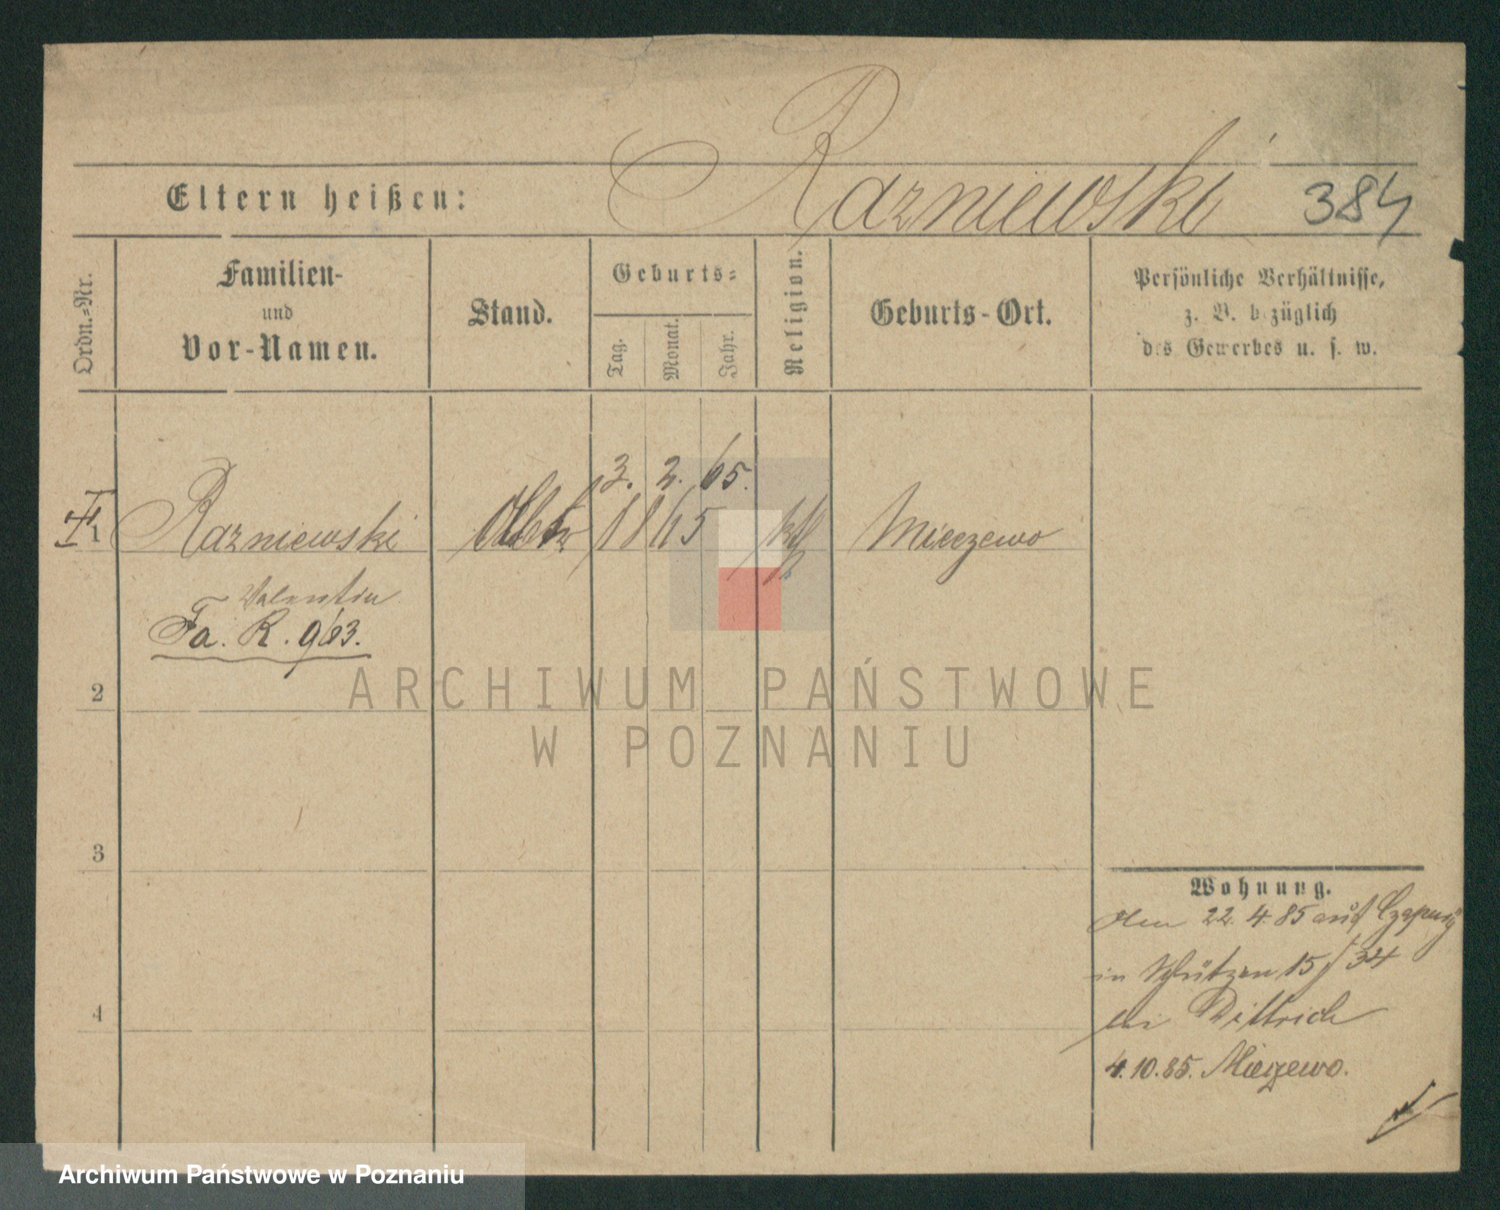 Razniewski
Eltern heißen: 384
Ordn.-Nr.
Familien-
und
Vor-Namen.
Stand.
Geburts-
Tag.
Monat.
Jahr.
Religion.
Geburts-Ort.
Persönliche Verhältnisse,
z. B. bezüglich
des Gewerbes u. s. w.
3. 2. 65.
1 Razniewski 1865 Mieczewo
Valentin
Fa. R. 963.
2
3
4
Wohnung.
22. 4. 85 auf
in Schützen 15 / 34
bei Dittrich
4. 10. 85. Mieczewo.
ARCHIWUM PAŃSTWOWE
W POZNANIU
Archiwum Państwowe w Poznaniu